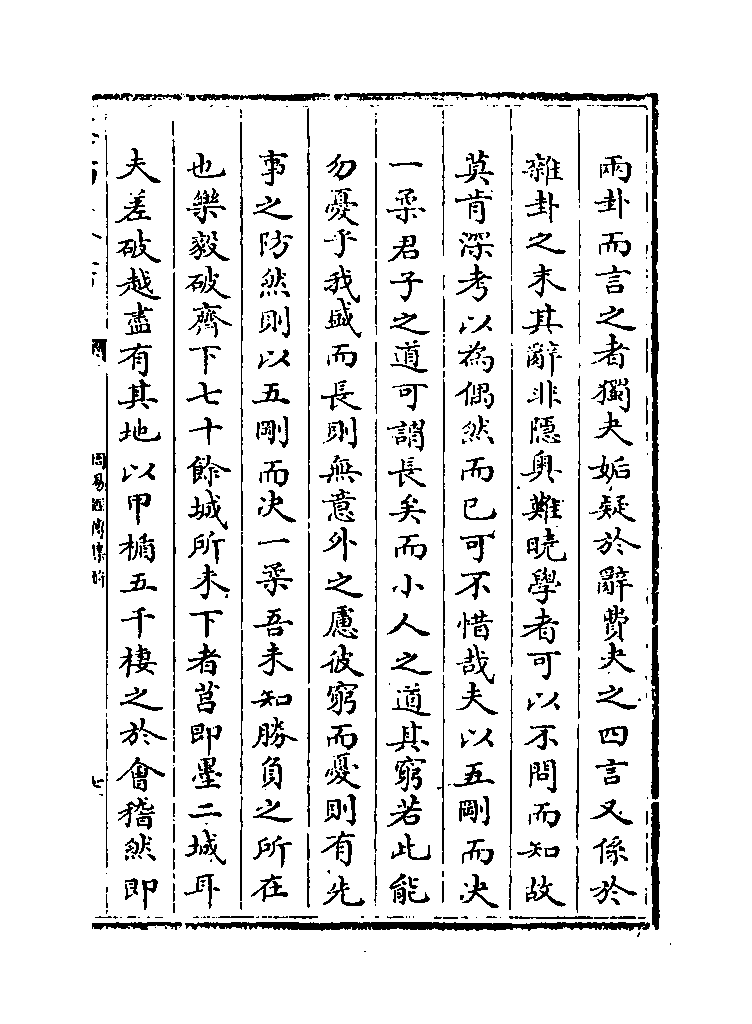 兩卦而言之者獨夬姤疑於辭費夬之四言又係於
雜卦之末其辭非隱奥難曉學者可以不問而知故
莫肯深考以為偶然而已可不惜哉夫以五剛而决
一柔君子之道可謂長矣而小人之道其窮若此能
勿憂乎我盛而長則無意外之慮彼窮而憂則有先
事之防然則以五剛而决一柔吾未知勝負之所在
也樂毅破齊下七十餘城所未下者莒即墨二城耳
夫差破越盡有其地以甲楯五千棲之於會稽然即
周易經傳集解
七